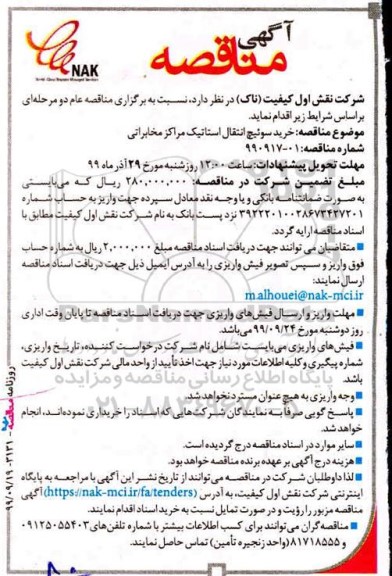 آگهی
مناقصه
NAK
شرکت نقش اول کیفیت (ناک) در نظر دارد، نسبت به برگزاری مناقصه عام دو مرحله‌ای
براساس شرایط زیر اقدام نماید.
موضوع مناقصه: خرید سوئیچ انتقال استاتیک مراکز مخابراتی
شماره مناقصه: ۰۱-۹۹۰۹۱۷
مهلت تحویل پیشنهادات: ساعت ۱۲:۰۰ روز شنبه مورخ ۲۹ آذر ماه ۹۹
مبلغ تضمین شرکت در مناقصه: ۲۸۰,۰۰۰,۰۰۰ ریال که می‌بایستی
به صورت ضمانتنامه بانکی و یا وجه نقد معادل سپرده جهت واریز به حساب شماره
۳۹۲۲۲۰۱۰۰۲۸۶۷۳۴۲۷۲۰۱ نزد پست بانک به نام شرکت نقش اول کیفیت مطابق با
اسناد مناقصه ارایه گردد.
■ متقاضیان می توانند جهت دریافت اسناد مناقصه مبلغ ۲,۰۰۰,۰۰۰ ریال به شماره حساب
فوق واریز و سپس تصویر فیش واریزی را به آدرس ایمیل ذیل جهت دریافت اسناد مناقصه
ارسال نمایند:
m.alhouei@nak-mci.ir
■ مهلت واریز و ارسال فیش‌های واریزی جهت دریافت اسناد مناقصه تا پایان وقت اداری
روز دوشنبه مورخ ۹۹/۰۹/۲۴ می‌باشد.
■ فیش‌های واریزی می‌بایست شامل نام شرکت درخواست کننده، تاریخ واریزی،
شماره پیگیری و کلیه اطلاعات مورد نیاز جهت اخذ تأیید از واحد مالی شرکت نقش اول کیفیت
باشد.
■ وجه واریزی به هیچ عنوان مسترد نخواهد شد.
■ پاسخ گویی صرفاً به نمایندگان شرکت‌هایی که اسناد را خریداری نموده‌اند، انجام
خواهد شد.
■ سایر موارد در اسناد مناقصه درج گردیده است.
■ هزینه درج آگهی بر عهده برنده مناقصه خواهد بود.
■ لذا داوطلبان شرکت در مناقصه می‌توانند از تاریخ نشر این آگهی با مراجعه به پایگاه
اینترنتی شرکت نقش اول کیفیت، به آدرس (https://nak-mci.ir/fa/tenders) آگهی
مناقصه مزبور را رؤیت و در صورت تمایل نسبت به خرید اسناد اقدام نمایند.
■ مناقصه گران می‌توانند برای کسب اطلاعات بیشتر با شماره تلفن‌های ۰۹۱۲۵۰۵۵۴۰۳
و ۸۱۷۱۸۵۵۵ (واحد زنجیره تأمین) تماس حاصل نمایند.
روزنامه مناقصه - ۳۱۲۱ - ۹۹/۰۹/۱۹